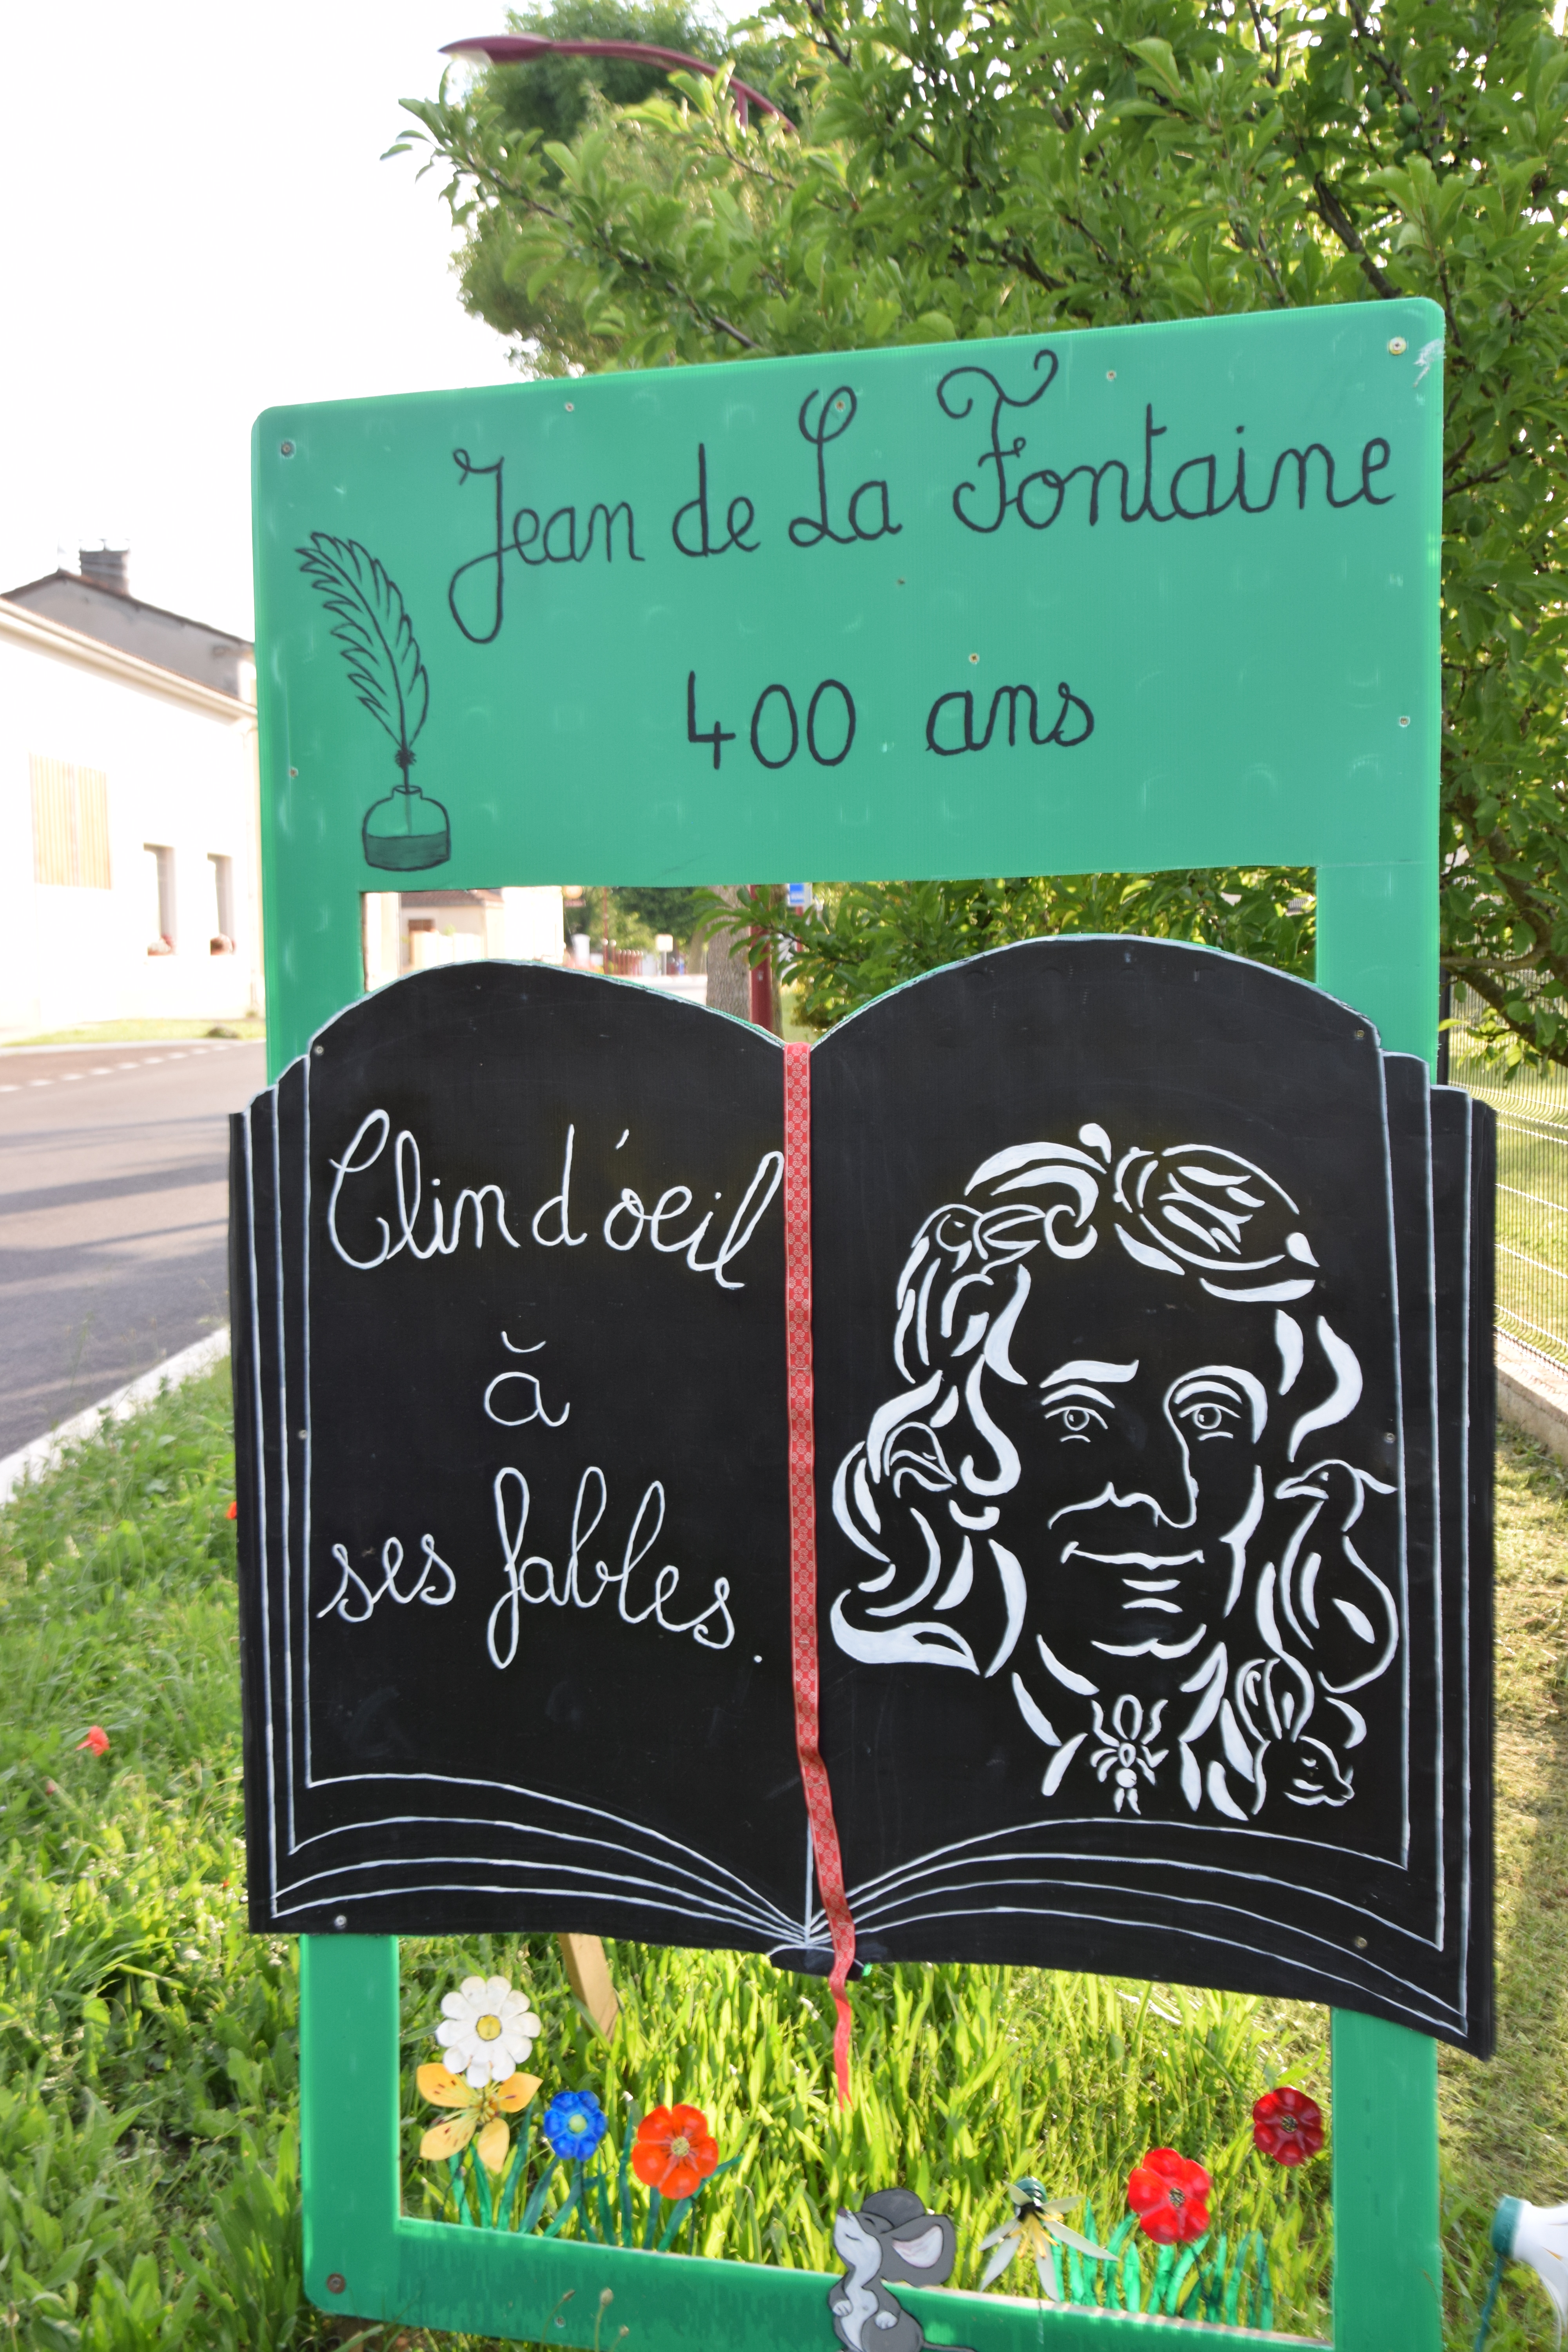 Jean de La Fontaine
400 ans
Clin d'oeil
à
ses fables.